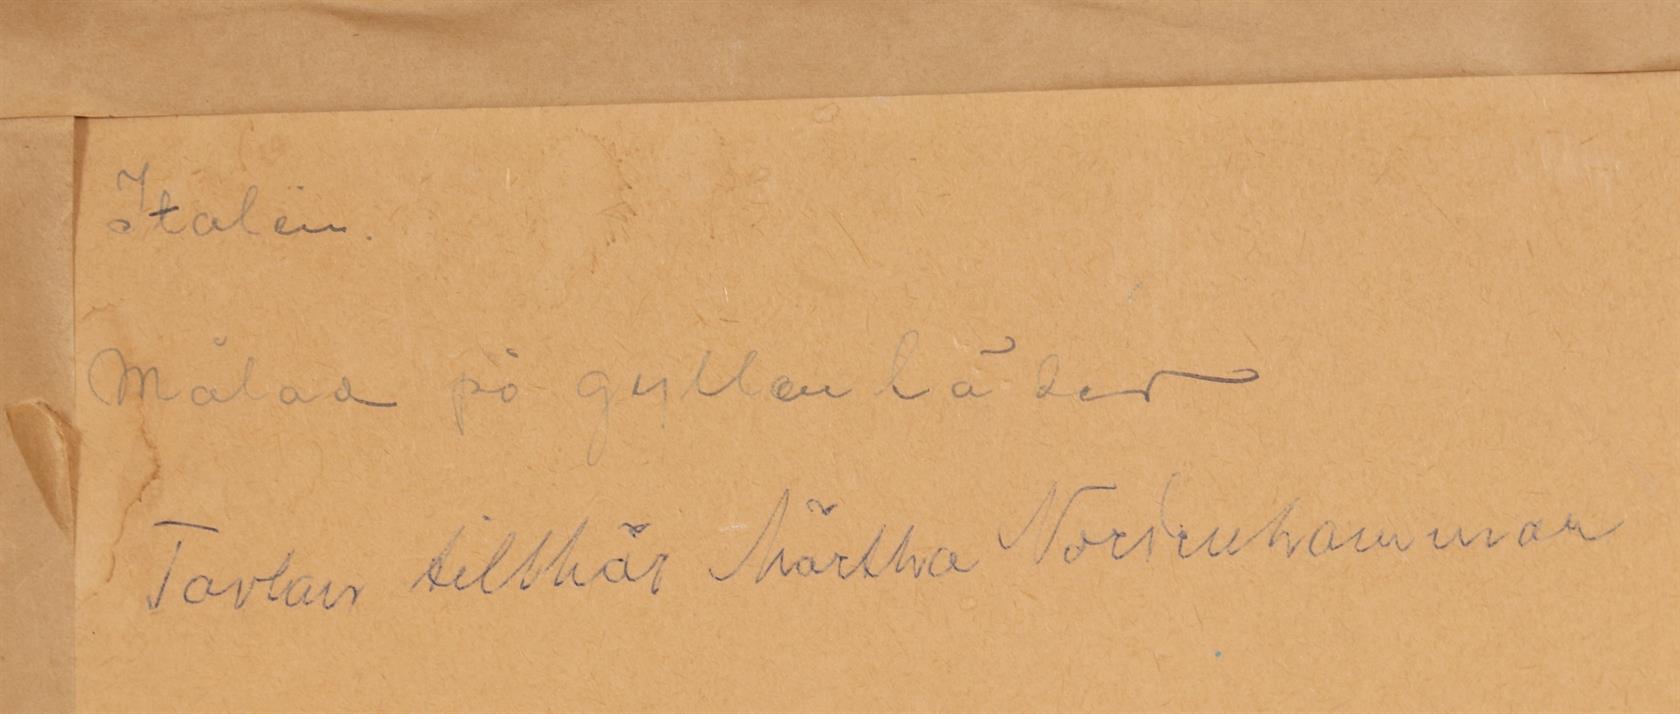 Italien.
Målad på gyllenläder
Tavlan tillhör Märtha Nordenhammar